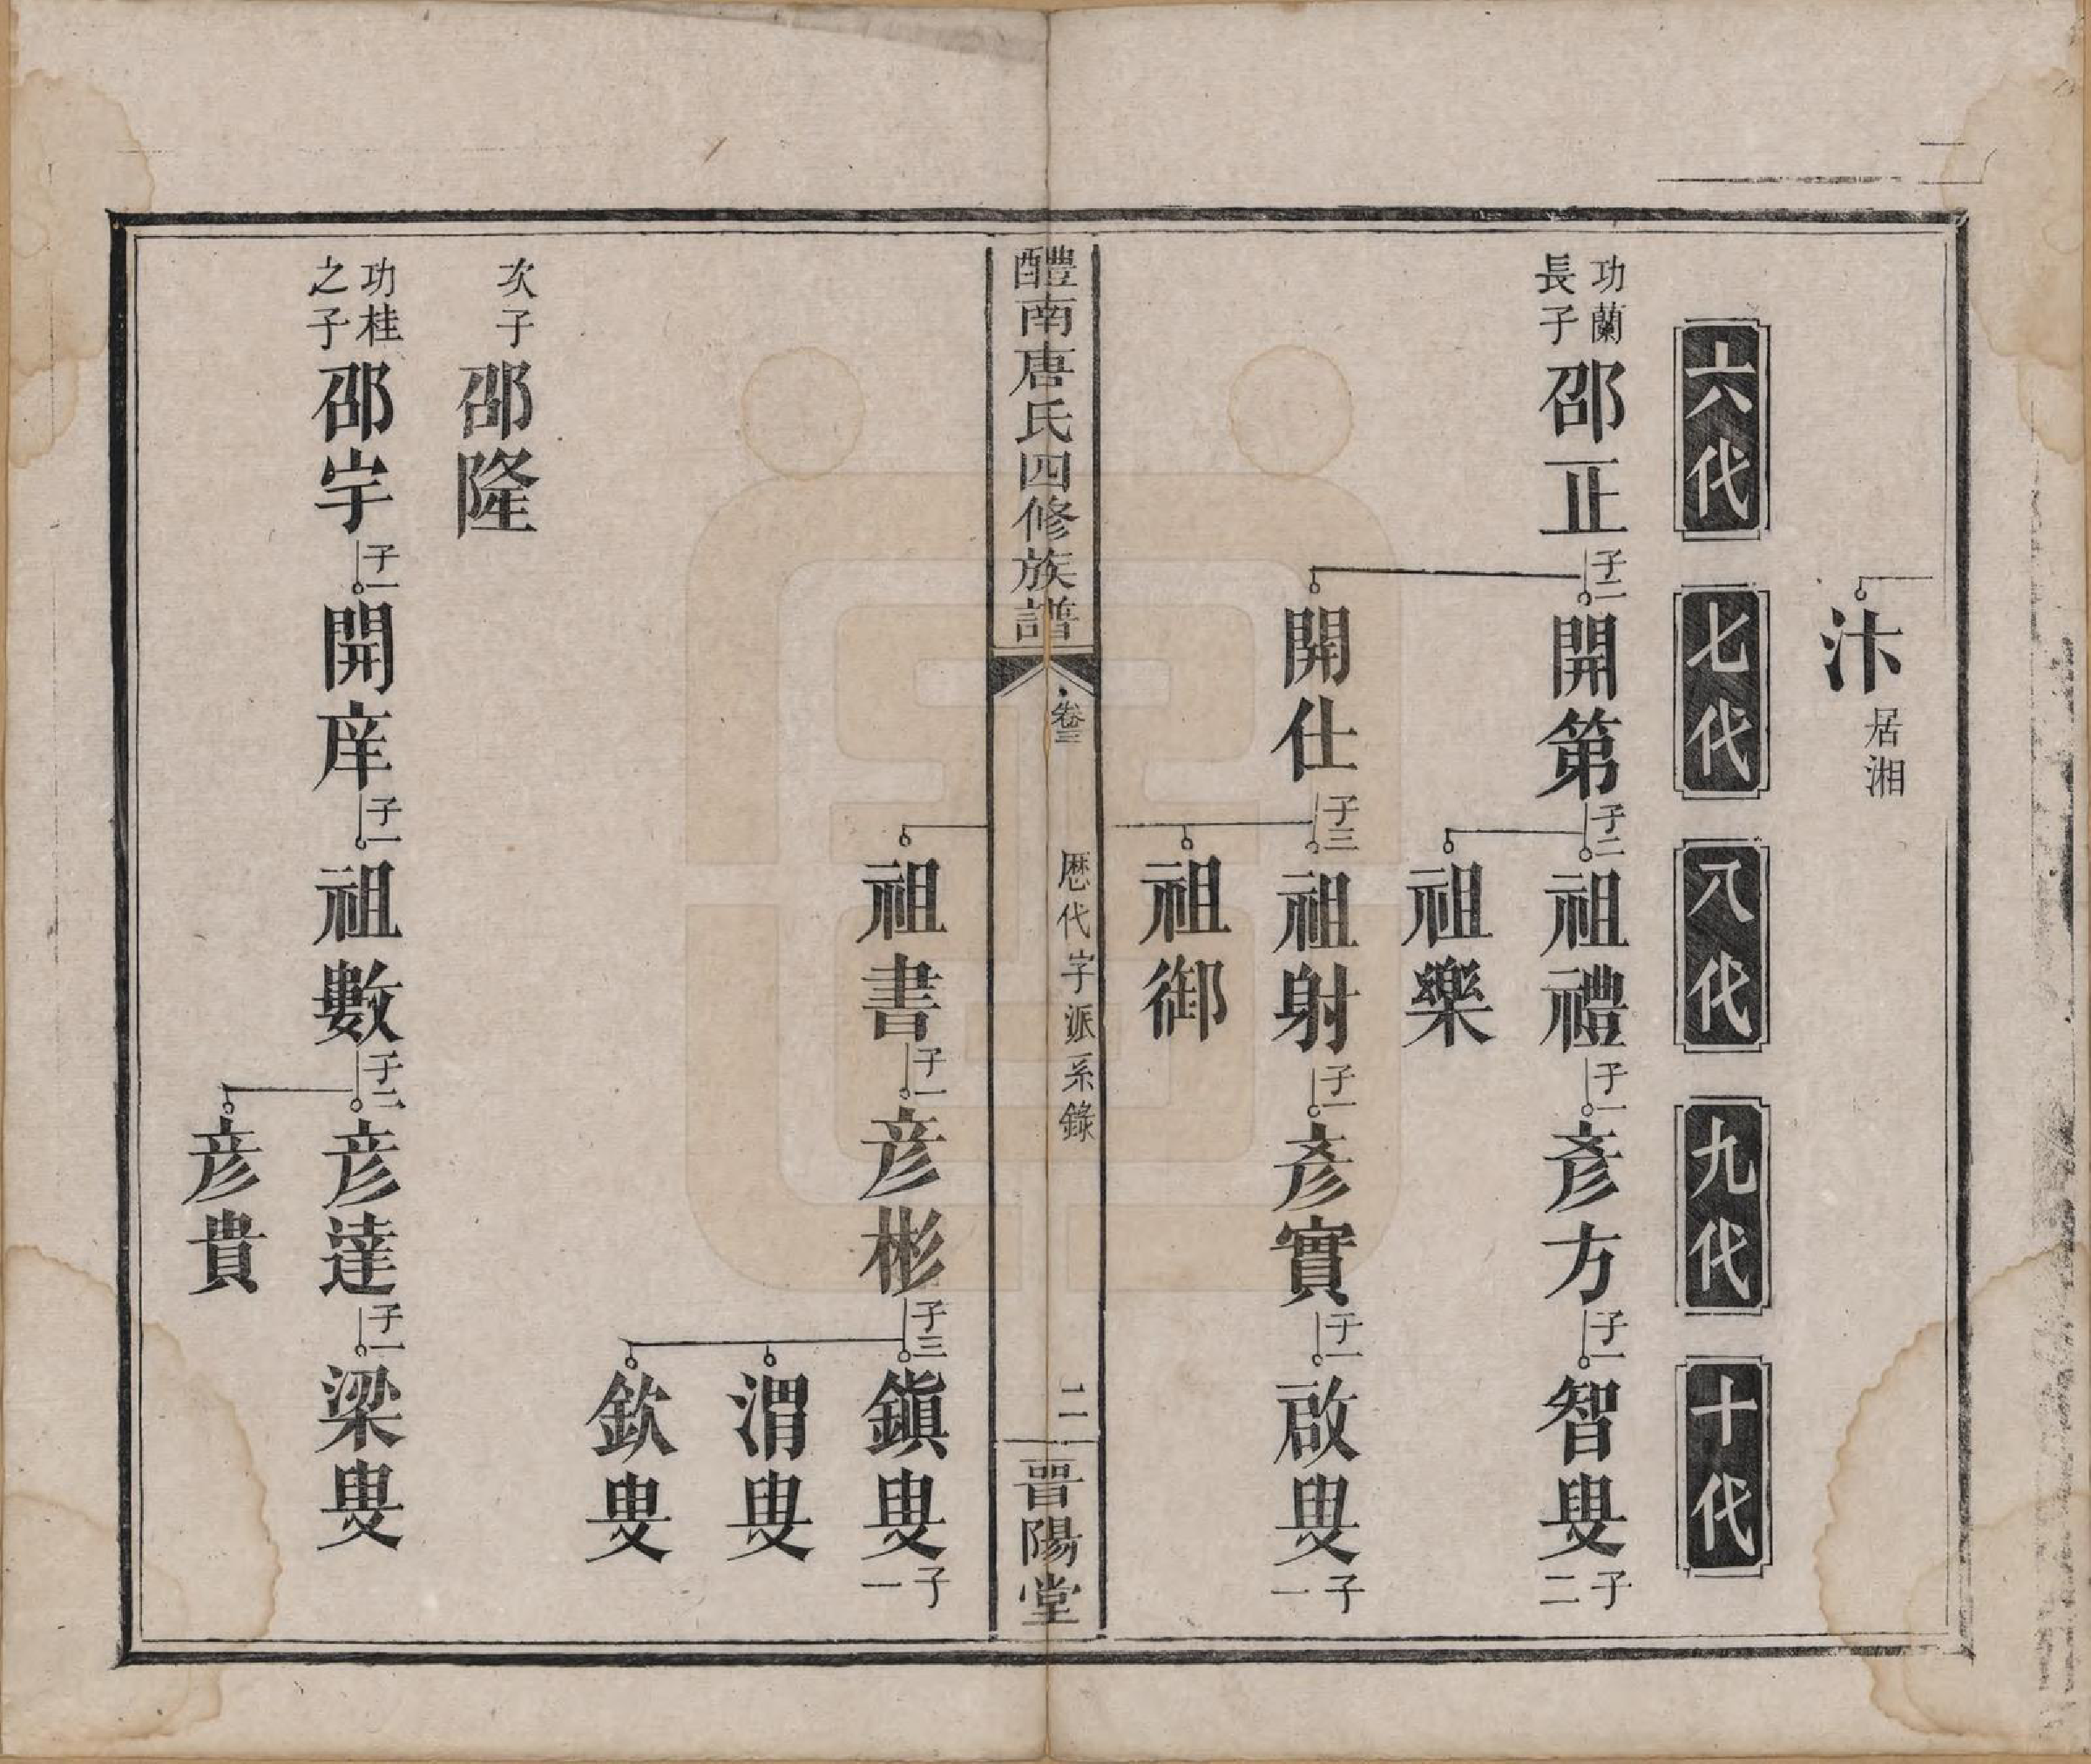 汴居湘
六代 七代 八代 九代 十代
功蘭長子 邵正 子二 開第 子二 祖禮 子一 彥方 子一 智叟 子二
祖樂
開仕 子三 祖射 子一 彥實 子一 啟叟 子一
祖御
醴南唐氏四修族譜 卷三 歷代字派系錄 二 晉陽堂
祖書 子一 彥彬 子三 鎮叟 子一
渭叟
欽叟
次子 邵隆
功桂之子 邵宇 子一 開庠 子一 祖數 子二 彥達 子一 梁叟
彥貴